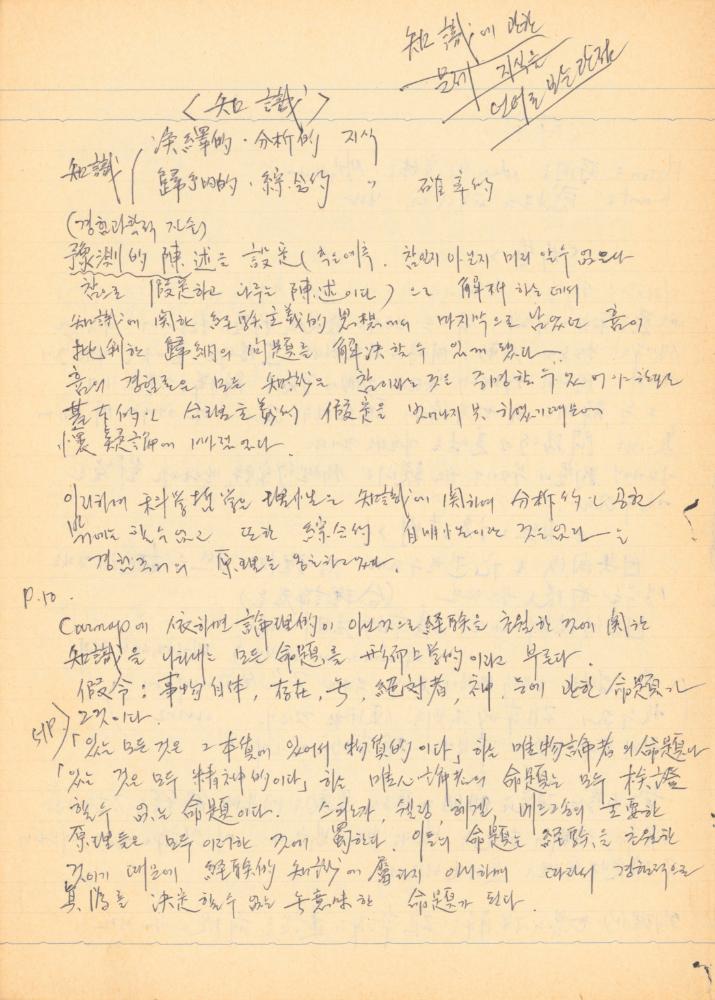 知識에 관한
문제 지식을
언어로 보는 관점
<知識>
演繹的·分析的 지식
知識
歸納的·綜合的 〃 確率的
(경험과학적 지식)
豫測的 陳述은 設定(측은예측, 참인지 아닌지 미리 알수 없으나
참으로 假定하고 다루는 陳述이다)으로 解釈하는데서
知識에 関한 経驗主義的 思想에서 마지막으로 남았던 흄이
批判한 歸納의 问題를 解決할수 있게 됐다.
흄의 경험론은 모든 知識은 참이라는 것을 증명할 수 있어야 한다는
基本的인 合理主義的 假定을 벗어나지 못하였기때문에
懷疑論에 빠졌었다.
이리하여 科学哲学은 理性은 知識에 関하여 分析的인 공헌
밖에는 할수 없고 또한 綜合的 自明性이란 것은 없다는
경험주의의 原理를 용인하였다.
P.10.
Carnap에 依하면 論理的이 아닌것으로 経験을 초월한 것에 関한
知識을 나타내는 모든 命題를 形而上学的이라고 부른다.
假令: 事物自体, 存在, 무, 絕対者, 神, 등에 관한 命題가
그것이다.
「있는 모든 것은 그 本質에 있어서 物質的이다」하는 唯物論者의 命題나
「있는 것은 모두 精神的이다」하는 唯心論者의 命題는 모두 検證
할수 없는 命題이다. 스피노자, 쉘링, 헤겔, 베르그송의 主要한
原理들은 모두 이러한 것에 屬한다. 이들의 命題는 経験을 초월한
것이기 때문에 経験的 知識에 屬하지 아니하며 따라서 경험적으로
真偽를 決定할수 없는 무意味한 命題가 된다.